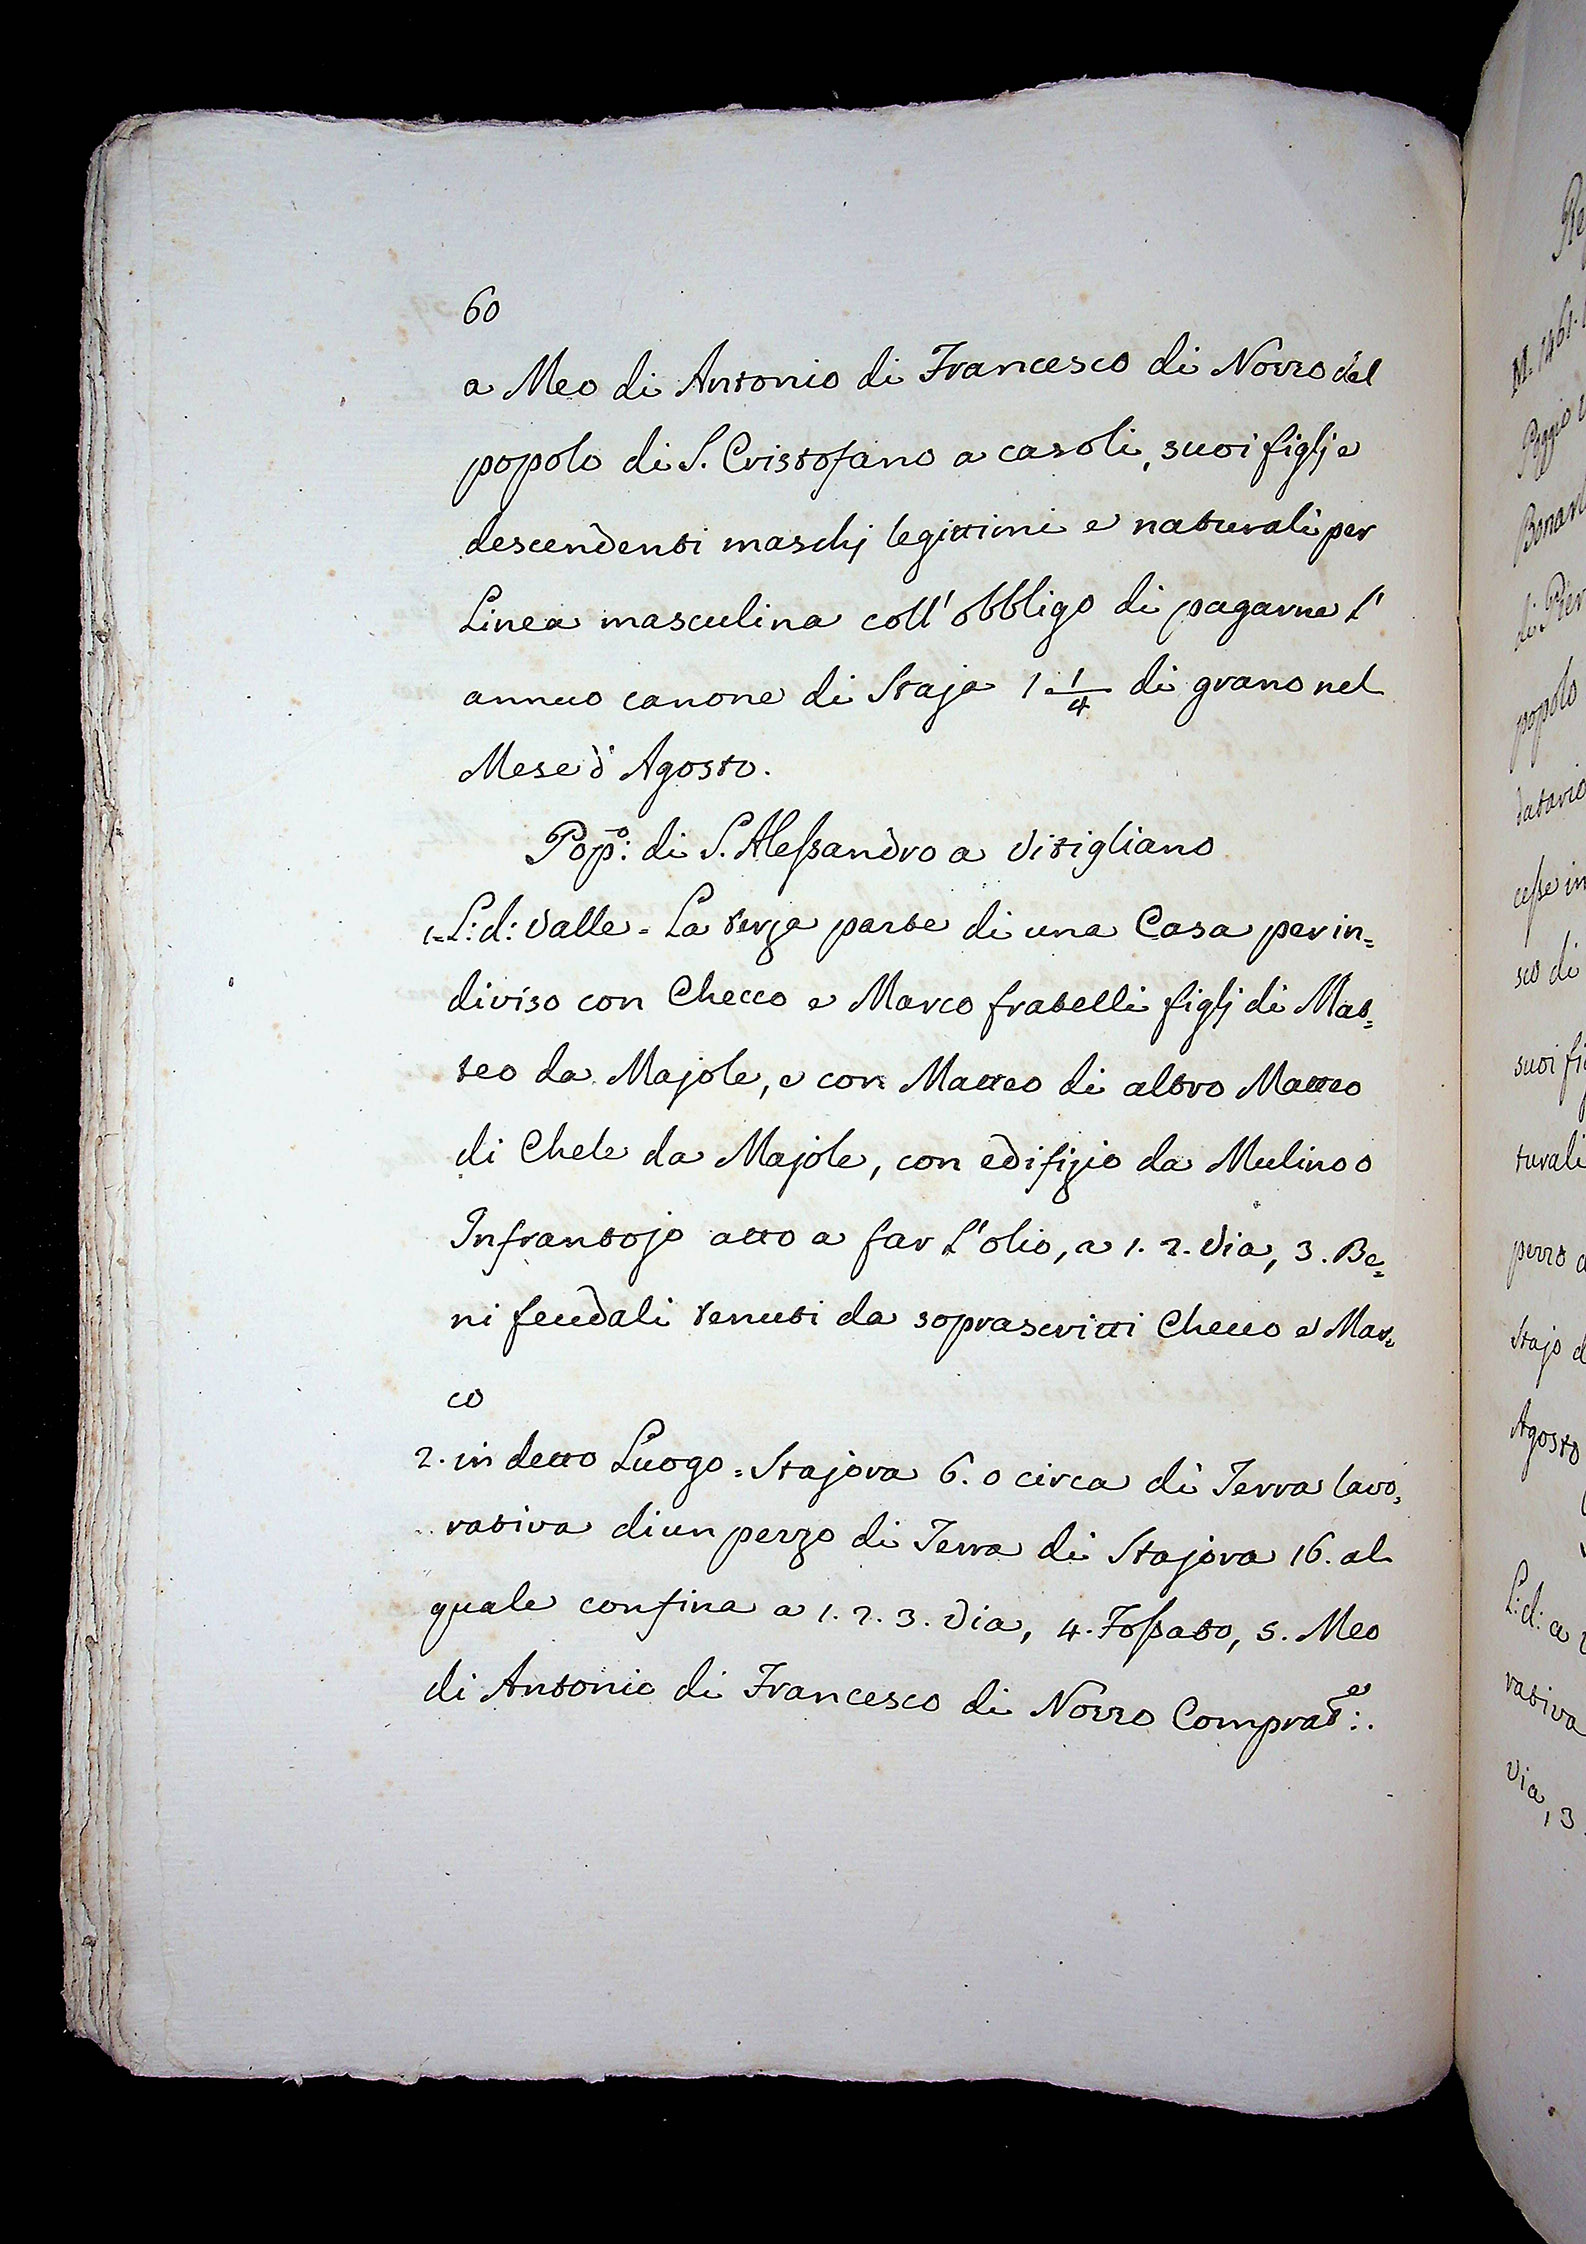 60
a Meo di Antonio di Francesco di Nozzo del
popolo di S. Cristofano a casoli, suoi figlj e
descendenti maschj legittimi e naturali per
Linea masculina coll' obbligo di pagarne l'
annuo canone di Staja 1 1/4 di grano nel
Mese d' Agosto.
Pop.o: di S. Alessandro a Vitigliano
1=L: d: Valle = La terza parte di una Casa per in=
diviso con Checco e Marco fratelli figlj di Mat=
teo da Majole, e con Matteo di altro Matteo
di Chele da Majole, con edifizio da Mulino o
Infrantojo atto a far l'olio, a 1. 2. Via, 3. Be=
ni feudali tenuti da soprascritti Checco e Mar=
co
2. in detto Luogo = Stajora 6. o circa di Terra lavo=
rativa di un pezzo di Terra di Stajora 16. al
quale confina a 1. 2. 3. Via, 4. Fossato, 5. Meo
di Antonio di Francesco di Nozzo Comprat.e:.
M. 1461.
Poggio
di Pier
popolo
datario
cesse in
sco di
suoi fi
turali
pezzo a
Stajo d
Agosto
L: d: a
rativa
Via, 3.